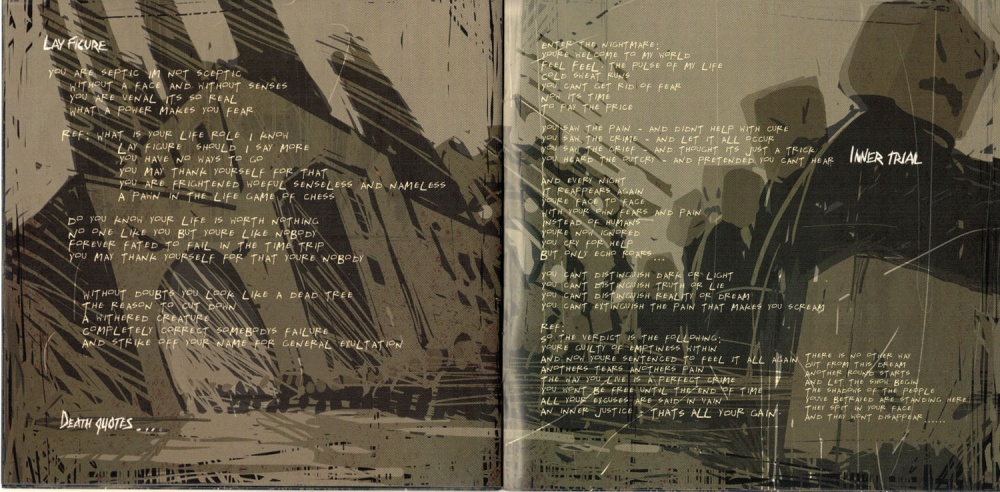 LAY FIGURE
YOU ARE SEPTIC IM NOT SCEPTIC
WITHOUT A FACE AND WITHOUT SENSES
YOU ARE VENAL ITS SO REAL
WHAT A POWER MAKES YOU FEAR
REF: WHAT IS YOUR LIFE ROLE I KNOW
LAY FIGURE SHOULD I SAY MORE
YOU HAVE NO WAYS TO GO
YOU MAY THANK YOURSELF FOR THAT
YOU ARE FRIGHTENED WOEFUL SENSELESS AND NAMELESS
A PAWN IN THE LIFE GAME OF CHESS
DO YOU KNOW YOUR LIFE IS WORTH NOTHING
NO ONE LIKE YOU BUT YOURE LIKE NOBODY
FOREVER FATED TO FAIL IN THE TIME TRIP
YOU MAY THANK YOURSELF FOR THAT YOURE NOBODY
WITHOUT DOUBTS YOU LOOK LIKE A DEAD TREE
THE REASON TO CUT DOWN
A WITHERED CREATURE
COMPLETELY CORRECT SOMEBODYS FAILURE
AND STRIKE OFF YOUR NAME FOR GENERAL EXULTATION
DEATH QUOTES ...
ENTER THE NIGHTMARE;
YOURE WELCOME TO MY WORLD
FEEL FEEL: THE PULSE OF MY LIFE
COLD SWEAT RUNS
YOU CANT GET RID OF FEAR
NOW ITS TIME
TO PAY THE PRICE
YOU SAW THE PAIN - AND DIDNT HELP WITH CURE
YOU SAW THE CRIME - AND LET IT ALL OCCUR
YOU SAW THE GRIEF - AND THOUGHT ITS JUST A TRICK
YOU HEARD THE OUTCRY - AND PRETENDED YOU CANT HEAR
INNER TRIAL
AND EVERY NIGHT
IT REAPPEARS AGAIN
YOURE FACE TO FACE
WITH YOUR OWN FEARS AND PAIN
INSTEAD OF HUMANS
YOURE NOW IGNORED
YOU CRY FOR HELP
BUT ONLY ECHO ROARS
YOU CANT DISTINGUISH DARK OR LIGHT
YOU CANT DISTINGUISH TRUTH OR LIE
YOU CANT DISTINGUISH REALITY OR DREAM
YOU CANT EXTINGUISH THE PAIN THAT MAKES YOU SCREAM
REF:
SO THE VERDICT IS THE FOLLOWING;
YOURE GUILTY OF EMPTINESS WITHIN
AND NOW YOURE SENTENCED TO FEEL IT ALL AGAIN
ANOTHERS TEARS ANOTHERS PAIN
THE WAY YOU LIVE IS A PERFECT CRIME
YOU WONT BE FREE UNTIL THE END OF TIME
ALL YOUR EXCUSES ARE SAID IN VAIN
AN INNER JUSTICE - THATS ALL YOUR GAIN
THERE IS NO OTHER WAY
OUT FROM THIS DREAM
ANOTHER ROUND STARTS
AND LET THE SHOW BEGIN
THE SHADOWS OF THE PEOPLE
YOUVE BETRAYED ARE STANDING HERE
THEY SPIT IN YOUR FACE
AND THEY WONT DISAPPEAR ......